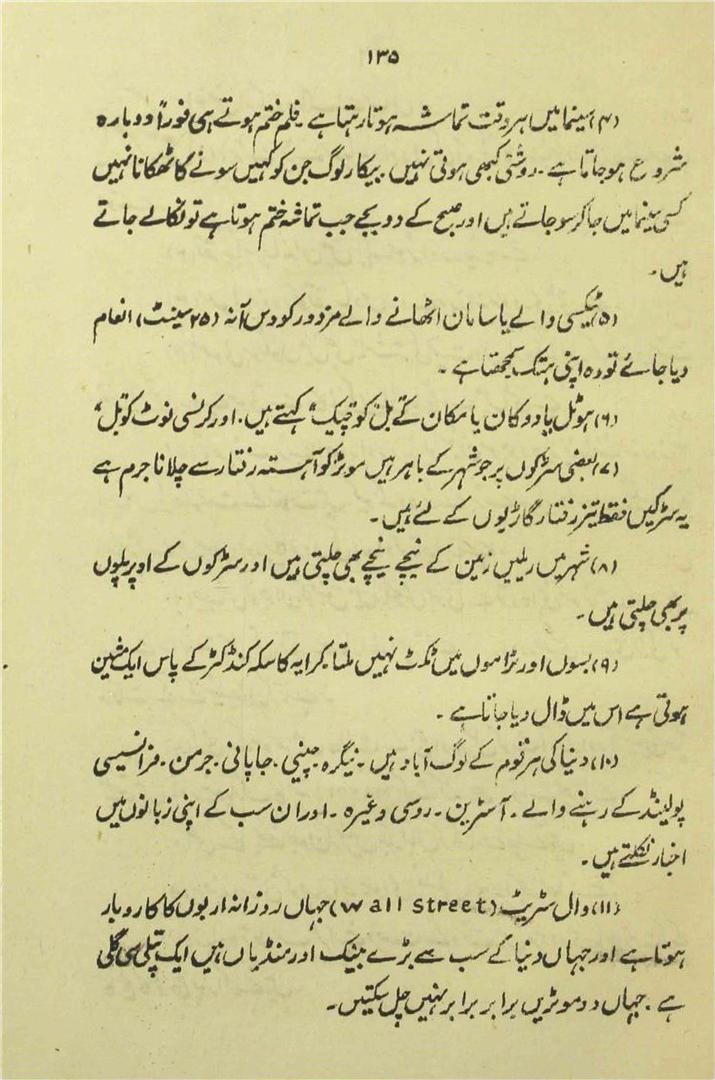 ۱۳۵
(۴) سینما میں ہر وقت تماشہ ہوتا رہتا ہے۔ فلم ختم ہوتے ہی فوراً دوبارہ
شروع ہو جاتا ہے۔ روشنی کبھی ہوتی نہیں۔ بیکار لوگ جن کو کہیں سونے کا ٹھکانا نہیں
کسی سینما میں جا کر سو جاتے ہیں اور صبح کے دو بجے جب تماشہ ختم ہوتا ہے تو نکالے جاتے
ہیں۔
(۵) ٹیکسی والے یا سامان اٹھانے والے مزدور کو دس آنہ (۲۵ سینٹ) انعام
دیا جائے تو وہ اپنی ہتک سمجھتا ہے۔
(۶) ہوٹل یا دوکان یا مکان کے بل کو "چیک" کہتے ہیں۔ اور کرنسی نوٹ کو "بل"
(۷) بعض سڑکوں پر جو شہر کے باہر ہیں موٹر کو آہستہ رفتار سے چلانا جرم ہے
یہ سڑکیں فقط تیز رفتار گاڑیوں کے لئے ہیں۔
(۸) شہر میں ریلیں زمین کے نیچے نیچے بھی چلتی ہیں اور سڑکوں کے اوپر پلوں
پر بھی چلتی ہیں۔
(۹) بسوں اور ٹراموں میں ٹکٹ نہیں ملتا کرایہ کا سکہ کنڈکٹر کے پاس ایک مشین
ہوتی ہے اس میں ڈال دیا جاتا ہے۔
(۱۰) دنیا کی ہر قوم کے لوگ آباد ہیں۔ نیگرہ۔ چینی۔ جاپانی۔ جرمن۔ فرانسیسی
پولینڈ کے رہنے والے۔ آسٹرین۔ روسی وغیرہ۔ اور ان سب کے اپنی زبانوں میں
اخبار نکلتے ہیں۔
(۱۱) وال سٹریٹ (wall street) جہاں روزانہ اربوں کا کاروبار
ہوتا ہے اور جہاں دنیا کے سب سے بڑے بینک اور منڈیاں ہیں ایک پتلی سی گلی
ہے۔ جہاں دو موٹریں برابر برابر نہیں چل سکتیں۔